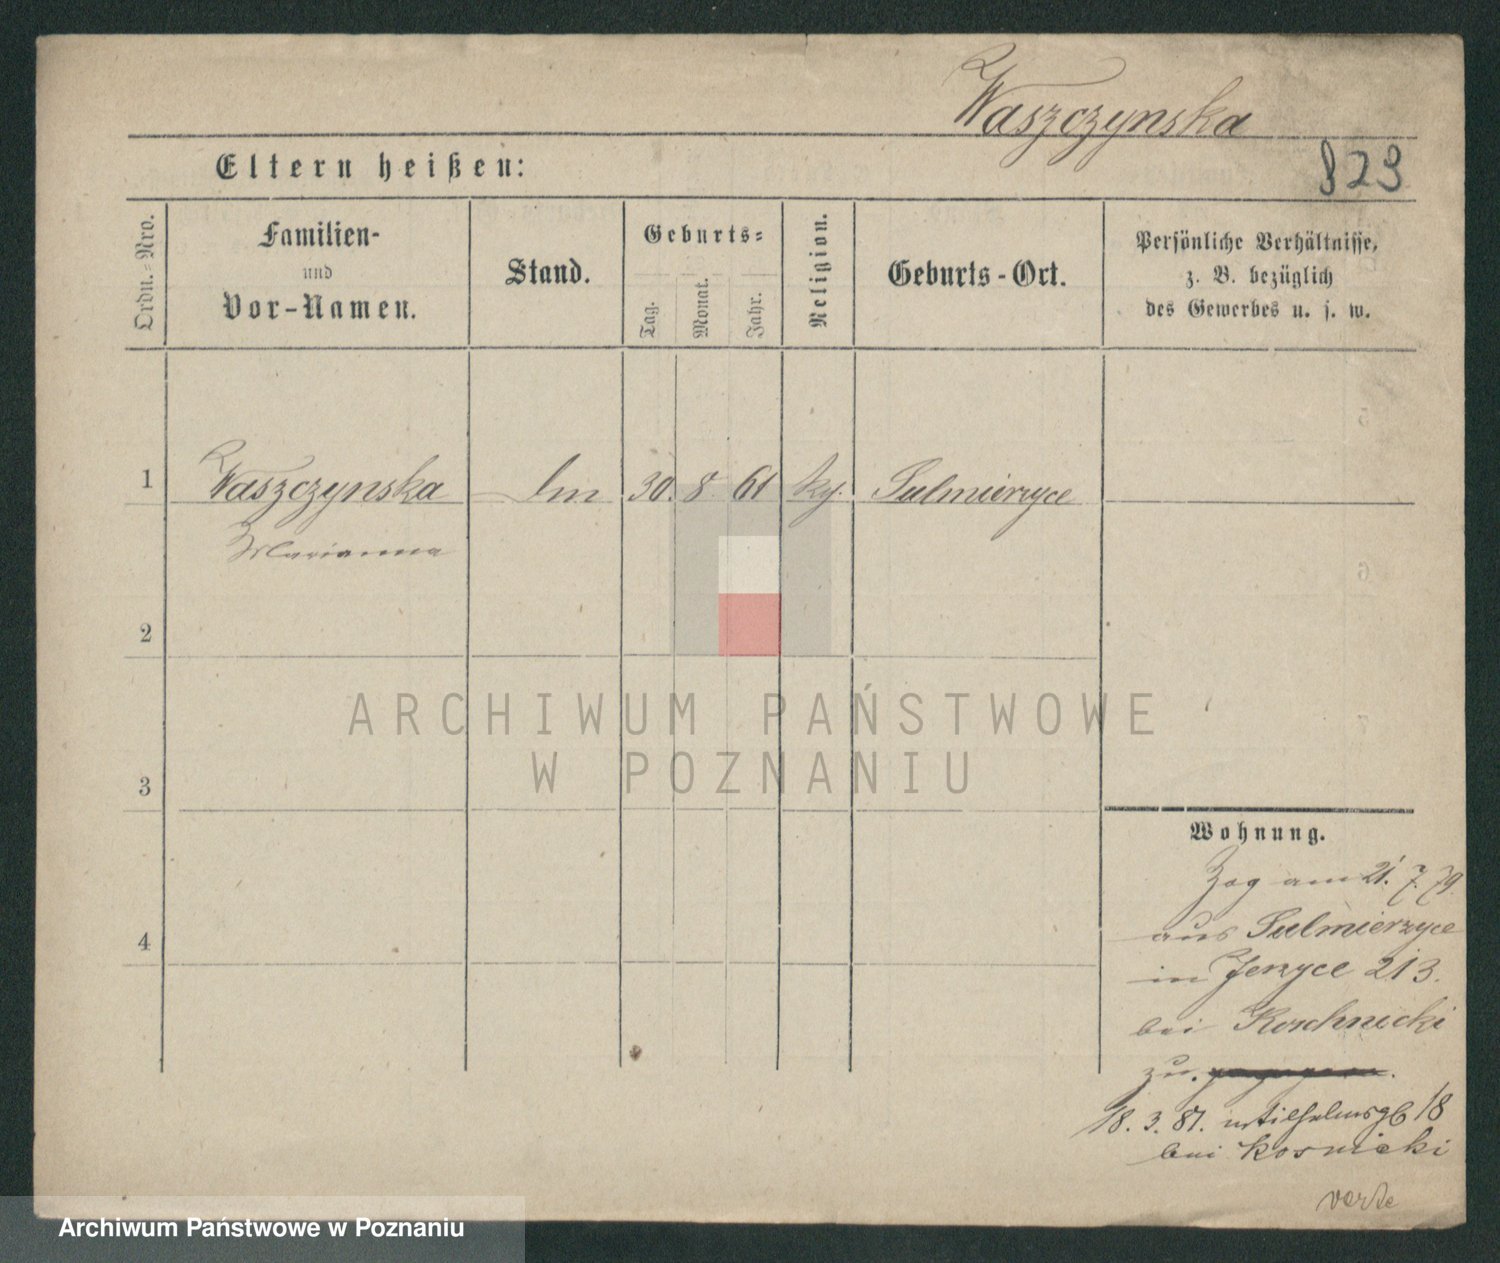 Waszczynska
823
Eltern heißen:
Ordn.-Nro.
Familien-
und
Vor-Namen.
Stand.
Geburts-
Tag.
Monat.
Jahr.
Religion.
Geburts-Ort.
Persönliche Verhältnisse,
z. B. bezüglich
des Gewerbes u. s. w.
1 Waszczynska 30. 8 61 Sulmierzyce
Marianna
2
3
4
ARCHIWUM PAŃSTWOWE
W POZNANIU
Wohnung.
Zog am 21. 7. 79.
aus Sulmierzyce
in Jerzyce 213.
bei Koschnicki
zu.
18. 3. 81. 18
bei Kosnicki
Archiwum Państwowe w Poznaniu